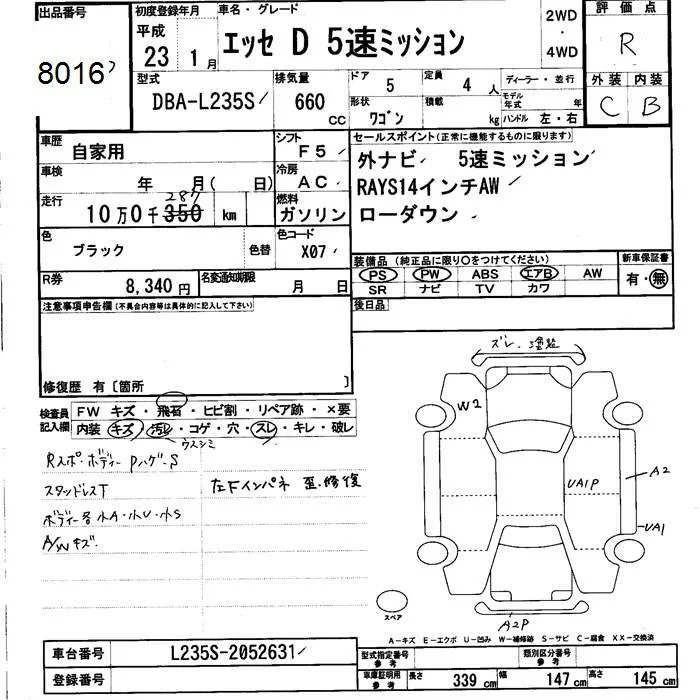 出品番号
8016
初度登録年月
平成
23年 1月
車名・グレード
エッセ D 5速ミッション
2WD
・
4WD
評価点
R
外装 内装
C B
型式
DBA-L235S
排気量
660 CC
ドア 5
定員 4人
ディーラー・並行
形状 ワゴン
積載 kg
モデル年式 年
ハンドル 左・右
車歴
自家用
シフト
F5
車検
年 月( 日)
冷房
AC
走行
287
10万0千350 km
燃料
ガソリン
色
ブラック
色替
色コード
X07
セールスポイント(正常に機能するものに限ります)
外ナビ 5速ミッション
RAYS14インチAW
ローダウン
装備品(純正品に限り○をつけてください)
PS PW ABS エアB AW
SR ナビ TV カワ
新車保証書
有・無
R券
8,340円
名変通知期限
月 日
後日品
注意事項申告欄(不具合内容等は具体的に記入して下さい)
修復歴 有〔箇所 〕
検査員記入欄
FW キズ・飛石・ヒビ割・リペア跡・×要
内装 キズ・汚レ・コゲ・穴・スレ・キレ・破レ
ウスシミ
Rスポ・ボディー Pハゲ・S
スタッドレスT
左Fインパネ 歪・修復
ボディー各小A・小U・小S
A/Wキズ
ズレ・塗装
W2
UA1P
A2
UA1
A2P
スペア
A-キズ E-エクボ U-凹み W-補修跡 S-サビ C-腐食 XX-交換済
車台番号
L235S-2052631
登録番号
型式指定番号
参考
類別区分番号
参考
車庫証明用
参考
長さ 339cm 幅 147cm 高さ 145cm